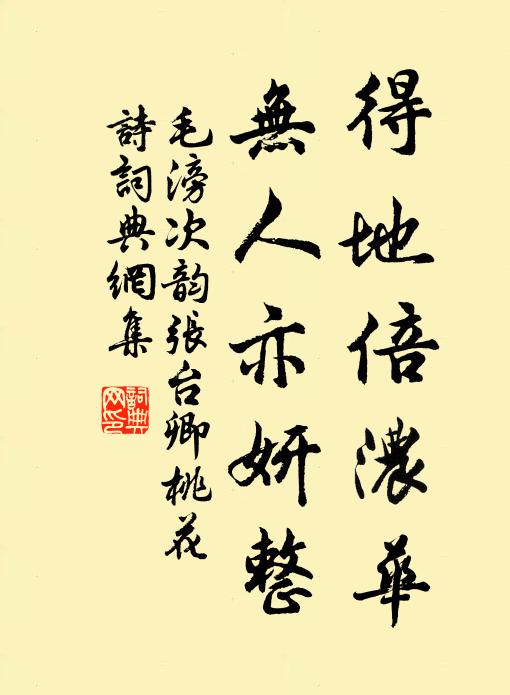 得地倍濃華
無人亦妍整
毛滂次韵張台卿桃花
詩詞典網集
詞典
网印